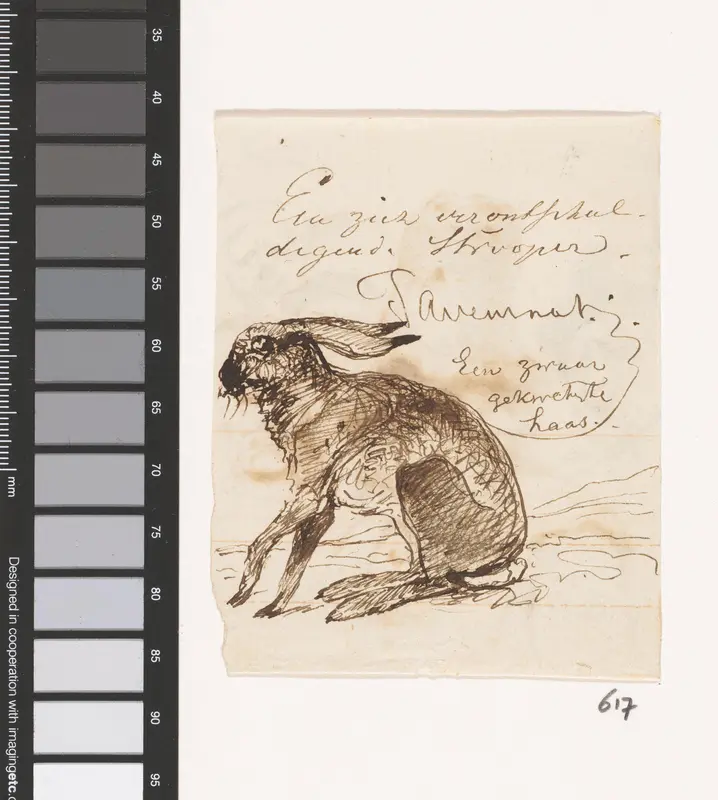 Een zich verontschul-
digend. Strooper.
Een zwaar
gekwetste
haas.
617
35
40
45
50
55
60
65
70
75
80
85
90
95
mm
Designed in cooperation with imagingetc.